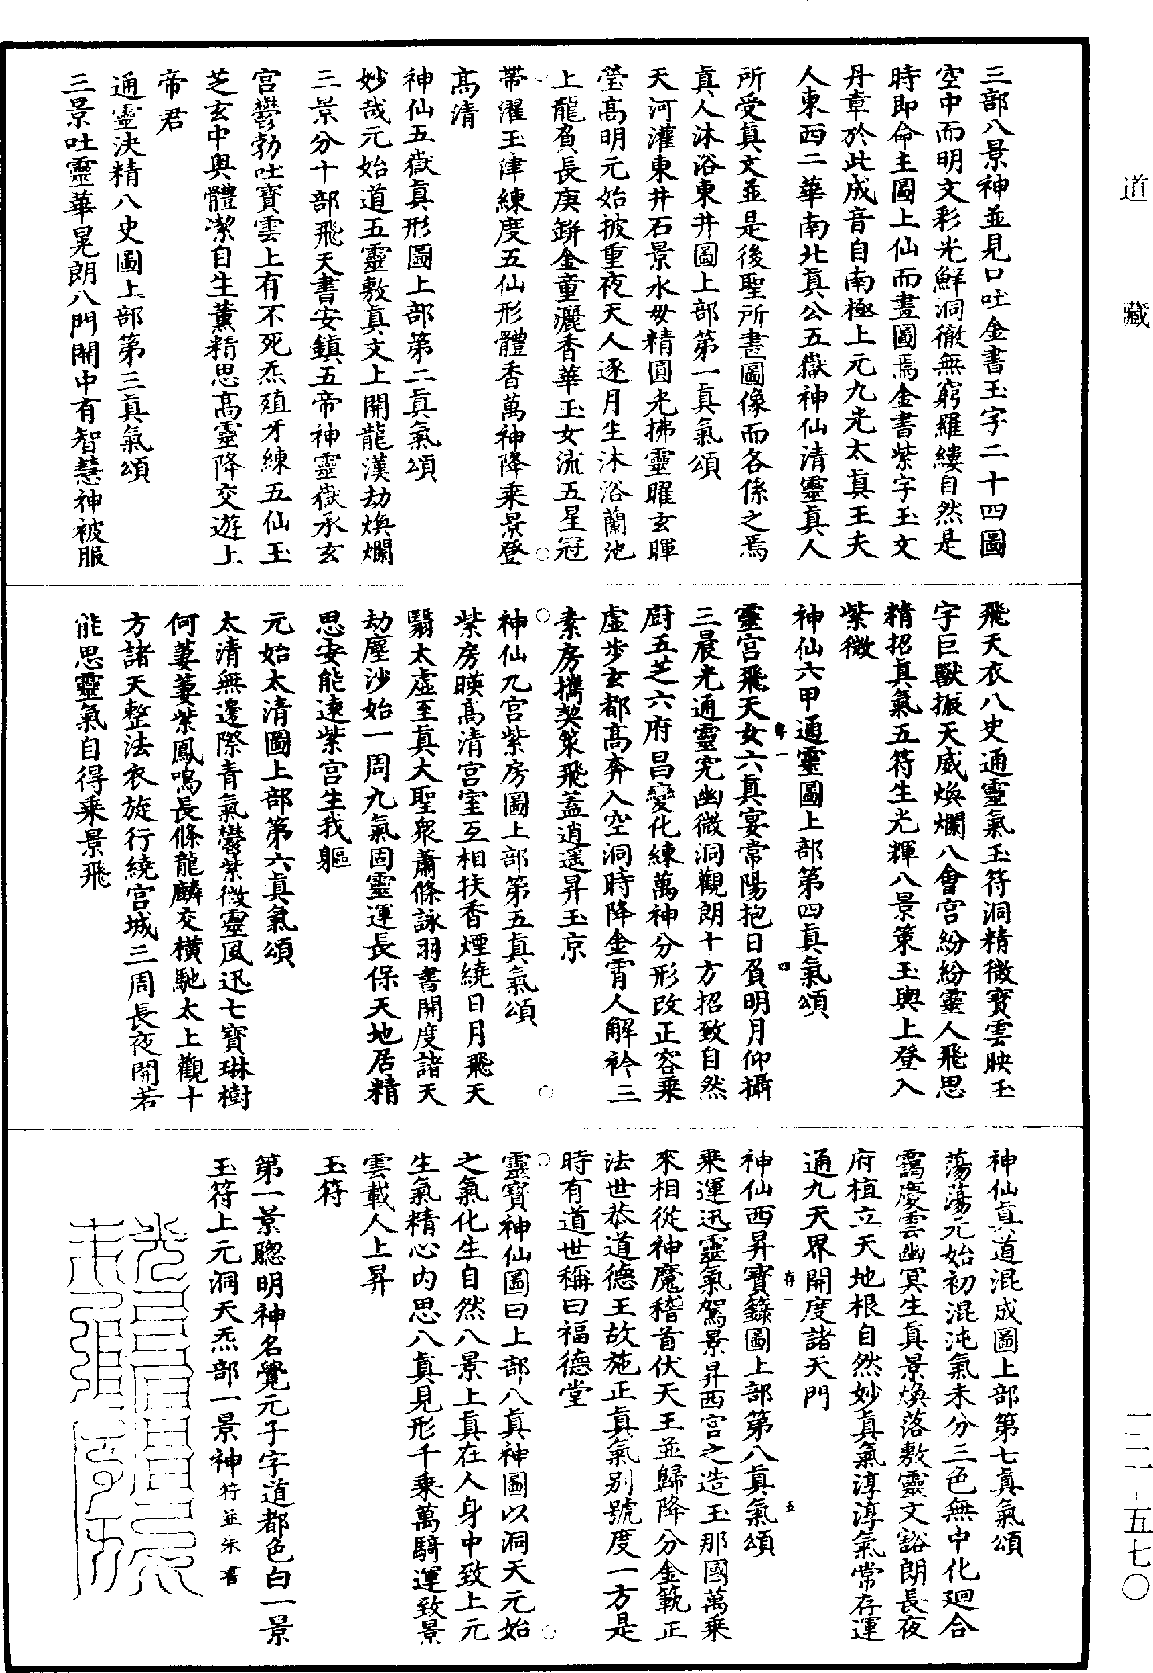 道藏
一二一-五七〇
三部八景神並見口吐金書玉字二十四圖
空中而明文彩光鮮洞徹無窮羅縷自然是
時即命主圖上仙而畫圖焉金書紫字玉文
丹章於此成音自南極上元九光太真王夫
人東西二華南北真公五嶽神仙清靈真人
所受真文並是後聖所書圖像而各係之焉
真人沐浴東井圖上部第一真氣頌
天河灌東井石景水母精圓光拂靈曜玄暉
瑩高明元始披重夜天人逐月生沐浴蘭池
上龍負長庚鉼金童灑香華玉女流五星冠
帶濯玉津練度五仙形體香萬神降乘景登
高清
神仙五嶽真形圖上部第二真氣頌
妙哉元始道五靈敷真文上開龍漢劫煥爛
三景分十部飛天書安鎮五帝神靈嶽承玄
宫鬱勃吐寶雲上有不死炁殖牙練五仙玉
芝玄中興體潔自生薰精思高靈降交遊上
帝君
通靈決精八史圖上部第三真氣頌
三景吐靈華晃朗八門開中有智慧神被服
飛天衣八史通靈氣玉符洞精微寶雲映玉
字巨獸振天威煥爛八會宫紛紛靈人飛思
精招真氣五符生光輝八景策玉輿上登入
紫微
神仙六甲通靈圖上部第四真氣頌
靈宫飛天女六真宴常陽抱日負明月仰攝
三晨光通靈究幽微洞觀朗十方招致自然
厨五芝六府昌變化練萬神分形改正容乘
虚步玄都高奔入空洞時降金霄人解衿三
素房攜契策飛蓋逍遥昇玉京
神仙九宫紫房圖上部第五真氣頌
紫房暎高清宫室互相扶香煙繞日月飛天
翳太虚至真大聖衆蕭條詠羽書開度諸天
劫塵沙始一周九氣固靈運長保天地居精
思安能速紫宫生我軀
元始太清圖上部第六真氣頌
太清無邊際青氣鬱紫微靈風迅七寶琳樹
何萋萋紫鳳鳴長條龍麟交横馳太上觀十
方諸天整法衣旋行繞宫城三周長夜開若
能思靈氣自得乘景飛
神仙真道混成圖上部第七真氣頌
蕩蕩元始初混沌氣未分三色無中化廻合
靄慶雲幽冥生真景煥落敷靈文豁朗長夜
府植立天地根自然妙真氣淳淳氣常存運
通九天界開度諸天門
神仙西昇寶籙圖上部第八真氣頌
乘運迅靈氣駕景昇西宫之造玉那國萬乘
來相從神魔稽首伏天王並歸降分金範正
法世恭道德王故施正真氣别號度一方是
時有道世稱曰福德堂
靈寶神仙圖曰上部八真神圖以洞天元始
之氣化生自然八景上真在人身中致上元
生氣精心内思八真見形千乘萬騎運致景
雲載人上昇
玉符
第一景聰明神名覺元子字道都色白一景
玉符上元洞天炁部一景神符並朱書